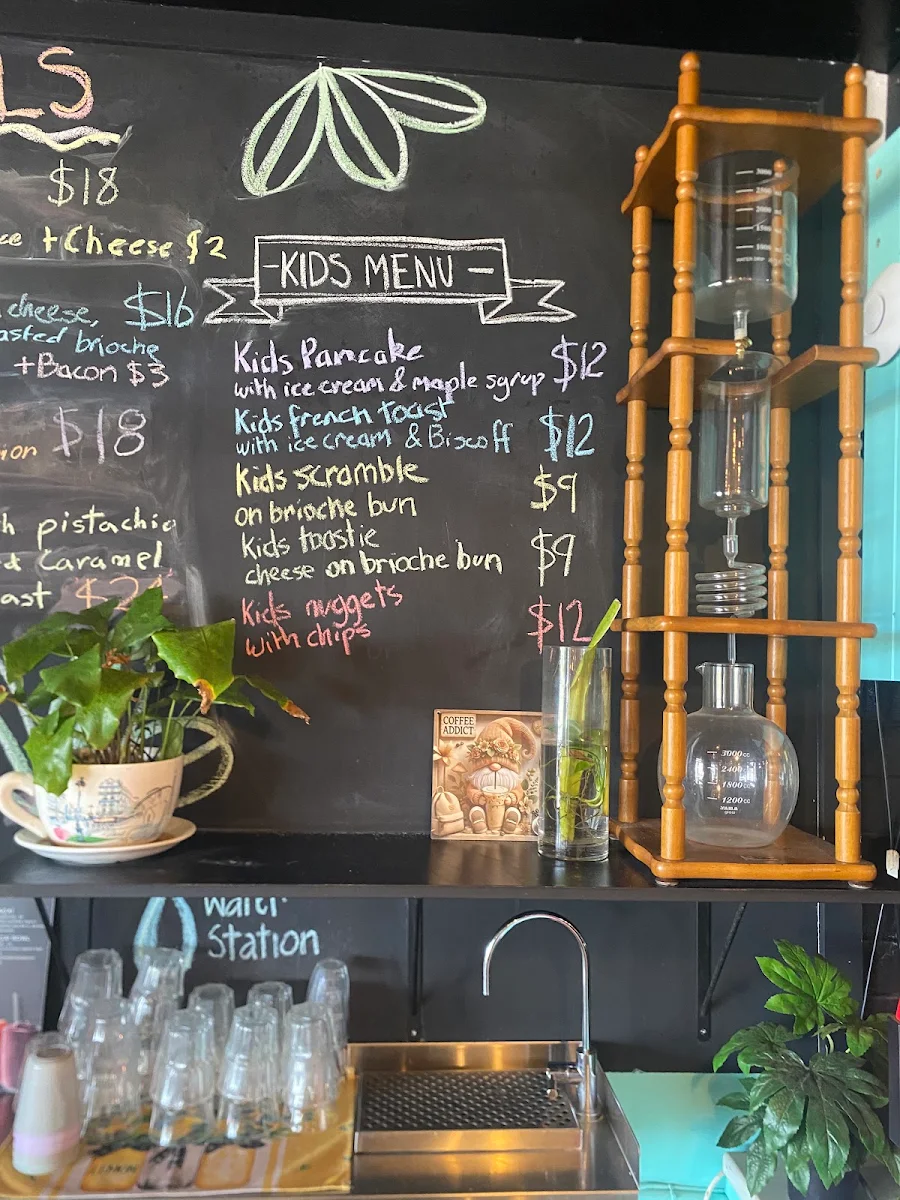 LS
$18
+Cheese $2
cheese, $16
asted brioche
+Bacon $3
ion $18
h pistachio
d Caramel
ast $24
-KIDS MENU-
Kids Pancake $12
with ice cream & maple syrup
Kids french toast
with ice cream & Biscoff $12
Kids scramble $9
on brioche bun
Kids toastie $9
cheese on brioche bun
Kids nuggets $12
with chips
COFFEE
ADDICT
3000cc
2400
1800cc
1200cc
Water
Station